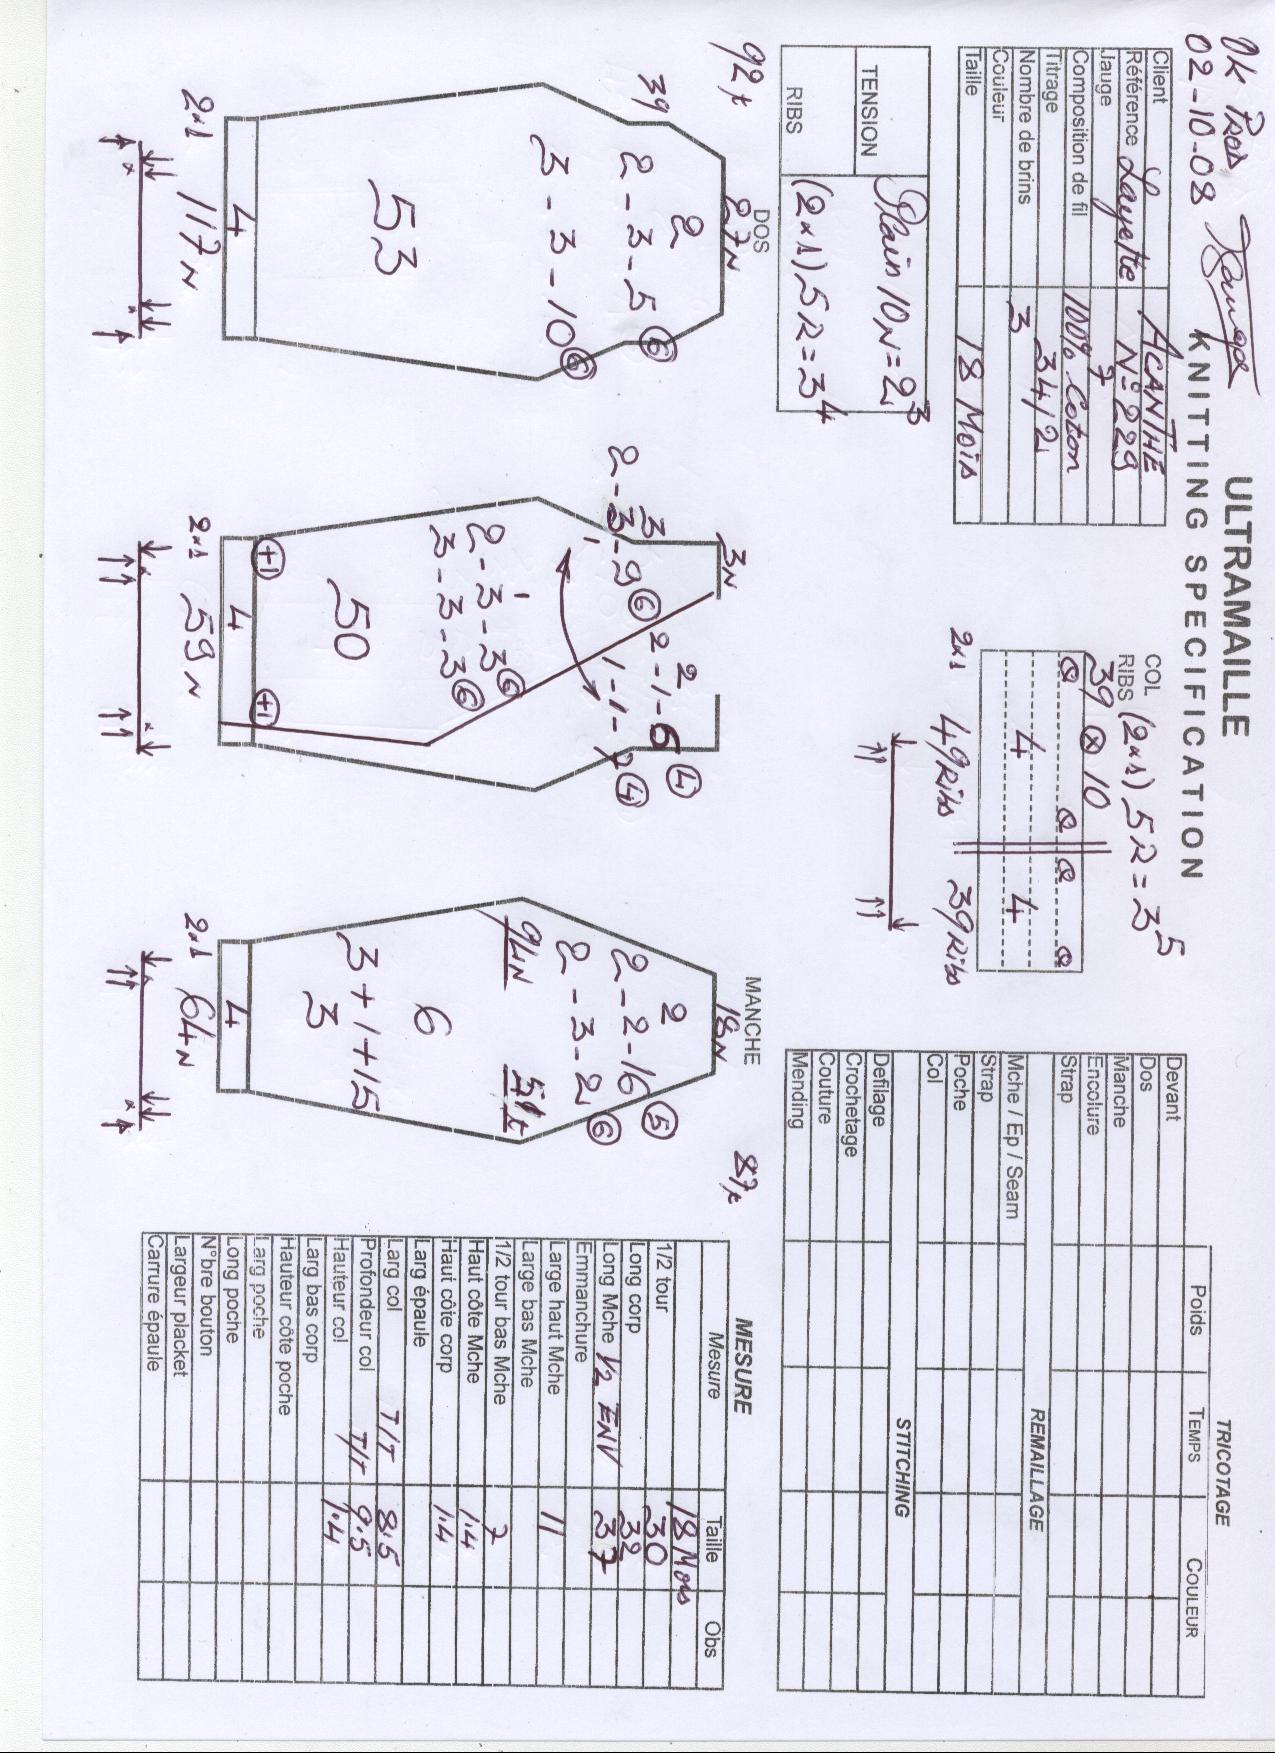 OK PROD
02-10-08
ULTRAMAILLE
KNITTING SPECIFICATION
Client ACANTHE
Référence Layette Nº 229
Jauge 7
Composition de fil 100% Coton
Titrage 34/2
Nombre de brins 3
Couleur
Taille 18 Mois
TENSION Plain 10N = 2³
RIBS (2x1) 5R = 3⁴
COL
RIBS (2x1) 5R = 3⁵
39 ⊗ 10
4 4
2x1 49 Ribs 39 Ribs
TRICOTAGE
Poids TEMPS COULEUR
Devant
Dos
Manche
Encolure
Strap
REMAILLAGE
Mche / Ep / Seam
Strap
Poche
Col
STITCHING
Defilage
Crochetage
Couture
Mending
DOS
92t
27N
2
39 2 - 3 - 5 ⑥
3 - 3 - 10 ⑥
53
4
2x1 117N
3N
3
2 - 3 - 9 ⑥
1
2
2 - 1 - 6 ④
1 - 1 - 7 ④
1
2 - 3 - 3 ⑥
3 - 3 - 3 ⑥
50
+1 +1
4
2x1 59N
MANCHE
87t
18N
2 ⑤
2 - 2 - 16
2 - 3 - 2 ⑥
94N 51t
6
3 + 1 + 15
3
4
2x1 64N
MESURE
Mesure Taille Obs
18 Mois
1/2 tour 30
Long corp 32
Long Mche V2 ENV 37
Emmanchure
Large haut Mche 11
Large bas Mche
1/2 tour bas Mche 7
Haut côte Mche 1.4
Haut côte corp 1.4
Larg épaule
Larg col T/T 8.5
Profondeur col T/T 9.5
Hauteur col 1.4
Larg bas corp
Hauteur côte poche
Larg poche
Long poche
N°bre bouton
Largeur placket
Carrure épaule